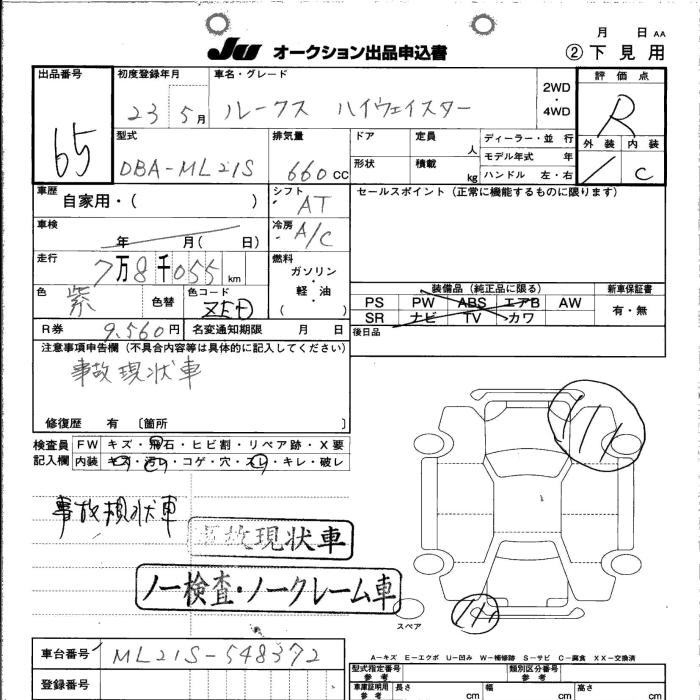 JU オークション出品申込書
月 日 AA
② 下見用
出品番号 65
初度登録年月 23 5月
車名・グレード ルークス ハイウェイスター
2WD ・ 4WD
評価点 R
外装 / 内装 C
型式 DBA-ML21S
排気量 660 CC
ドア 定員 人
形状 積載 kg
ディーラー・並 行
モデル年式 年
ハンドル 左・右
車歴 自家用・( )
シフト AT
セールスポイント(正常に機能するものに限ります)
車検 年 月( 日)
冷房 A/C
走行 7万8千055 km
燃料 ガソリン ・ 軽・油 ( )
色 紫 色替 色コード
装備品(純正品に限る)
新車保証書 有・無
PS PW ABS エアB AW
SR ナビ TV カワ
R券 9.560円
名変通知期限 月 日
後日品
注意事項申告欄(不具合内容等は具体的に記入してください)
事故現状車
修復歴 有〔箇所 〕
検査員記入欄
FW キズ・飛石・ヒビ割・リペア跡・X要
内装 キズ・汚れ・コゲ・穴・スレ・キレ・破レ
事故現状車
事故現状車
ノー検査・ノークレーム車
スペア
A-キズ E-エクボ U-凹み W-補修跡 S-サビ C-腐食 XX-交換済
車台番号 ML21S-548372
登録番号
型式指定番号 参考
類別区分番号 参考
車庫証明用 参考
長さ cm 幅 cm 高さ cm